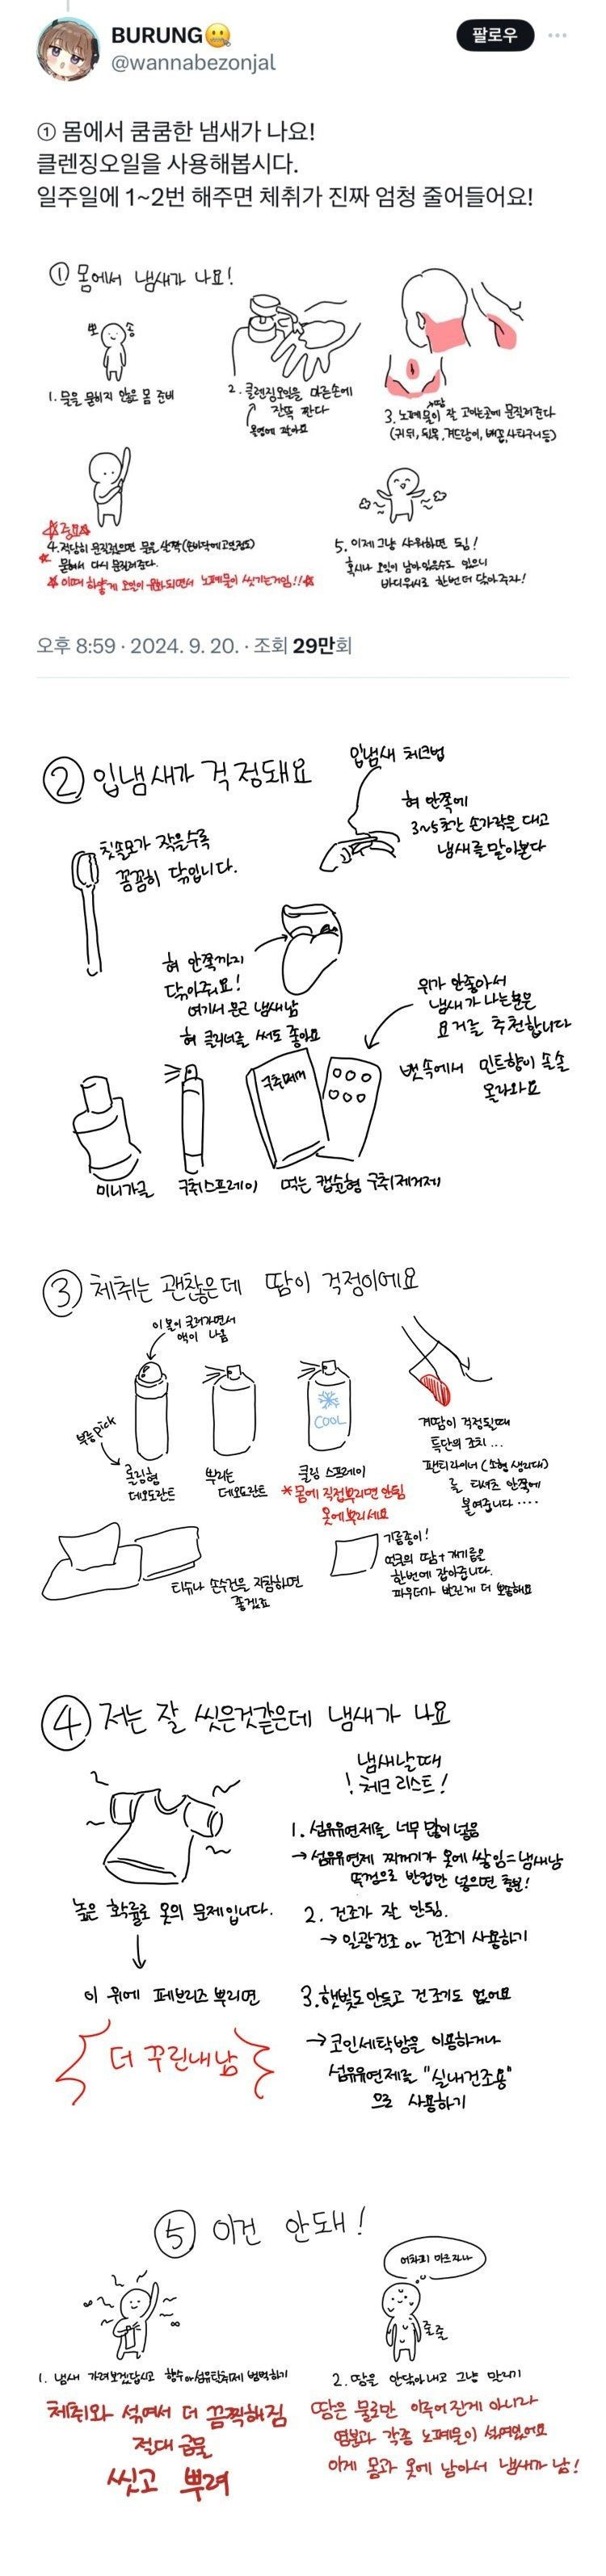 BURUNG🤐
팔로우
@wannabezonjal
① 몸에서 쿰쿰한 냄새가 나요!
클렌징오일을 사용해봅시다.
일주일에 1~2번 해주면 체취가 진짜 엄청 줄어들어요!
① 몸에서 냄새가 나요!
뽀 송
1. 물을 묻히지 않은 몸 준비
2. 클렌징오일을 마른손에
잔뜩 짠다
3. 노폐물이 잘 고이는곳에 문질러준다
땀
(귀 뒤, 뒷목, 겨드랑이, 배꼽, 사타구니 등)
☆중요☆
4. 적당히 문질렀으면 물을 살짝(손바닥에 고일정도)
묻혀서 다시 문질러준다.
☆이때 하얗게 오일이 유화되면서 노폐물이 씻기는거임!!☆
5. 이제 그냥 샤워하면 됨!
혹시나 오일이 남아있을수도 있으니
바디워시로 한번 더 닦아주자!
오후 8:59 · 2024. 9. 20. · 조회 29만회
② 입냄새가 걱정돼요
입냄새 체크법
혀 안쪽에
3~5초간 손가락을 대고
냄새를 맡아본다
칫솔모가 작을수록
꼼꼼히 닦입니다.
혀 안쪽까지
닦아주세요!
여기서 온근 냄새남
혀 클리너를 써도 좋아요
위가 안좋아서
냄새가 나는분은
요거를 추천합니다
뱃속에서 민트향이 솔솔
올라와요
구취제거
미니가글
구취스프레이
먹는 캡슐형 구취제거제
③ 체취는 괜찮은데 땀이 걱정이에요
이 볼이 굴러가면서
액이 나옴
부릉pick
롤링형
데오도란트
뿌리는
데오도란트
COOL
쿨링 스프레이
*몸에 직접뿌리면 안됨
옷에뿌리세요
겨땀이 걱정될때
특단의 조치...
팬티라이너 (소형 생리대)
를 티셔츠 안쪽에
붙여줍니다....
티슈나 손수건을 지참하면
좋겠죠
기름종이!
얼굴의 땀+개기름을
한번에 잡아줍니다.
파우더가 발린게 더 뽀송해요
④ 저는 잘 씻은것같은데 냄새가 나요
냄새날때
!체크리스트!
높은 확률로 옷의 문제입니다.
이 위에 페브리즈 뿌리면
더 꾸린내남
1. 섬유유연제를 너무 많이 넣음
→섬유유연제 찌꺼기가 옷에 쌓임=냄새남
뚜껑으로 반컵만 넣으면 충분!
2. 건조가 잘 안됨.
→일광건조 or 건조기 사용하기
3. 햇빛도 안들고 건조기도 없어요
→코인세탁방을 이용하거나
섬유유연제를 "실내건조용"
으로 사용하기
⑤ 이건 안돼!
1. 냄새 가려보겠답시고 향수or섬유탈취제 범벅하기
체취와 섞여서 더 끔찍해짐
절대 금물
씻고 뿌려
어차피 마르자나
줄줄
2. 땀을 안닦아내고 그냥 말리기
땀은 물로만 이루어진게 아니라
염분과 각종 노폐물이 섞여있어요
이게 몸과 옷에 남아서 냄새가 남!